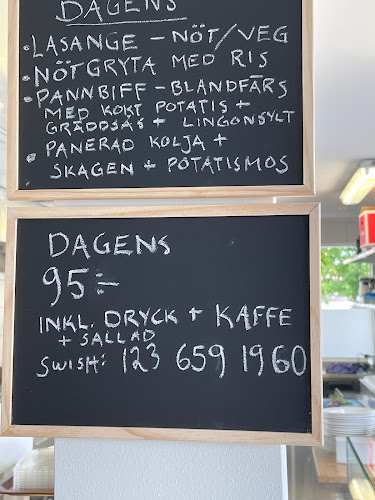 DAGENS
• LASANGE - NÖT/VEG
• NÖTGRYTA MED RIS
• PANNBIFF - BLANDFÄRS
MED KOKT POTATIS +
GRÄDDSÅS + LINGONSYLT
• PANERAD KOLJA +
SKAGEN + POTATISMOS
DAGENS
95:-
INKL. DRYCK + KAFFE
+ SALLAD
SWISH: 123 659 1960